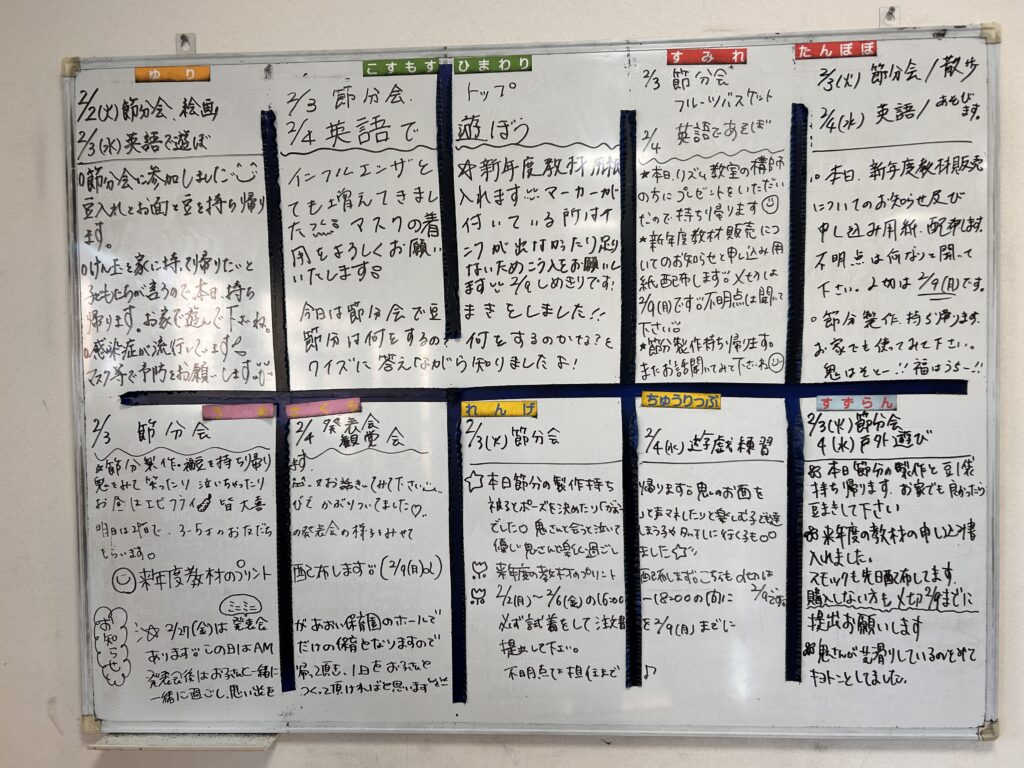 ゆり
2/2(火)節分会、絵画
2/3(水)英語で遊ぼ
節分会に参加しました
豆入れとお面と豆を持ち帰り
ます。
けん玉を家に持って帰りたいと
子どもたちが言うので本日、持ち
帰ります。お家で遊んで下さいね。
感染症が流行しています
マスク等で予防をお願いします。
こすもす
ひまわり
2/3 節分会.
トップ
2/4 英語で 遊ぼう
インフルエンザと
ても増えてきまし
た マスクの着
用をよろしくお願い
いたします
☆新年度教材用紙
入れます マーカーが
付いている所はイ
ンクが出なかったり足り
ないためこう入をお願いし
ます 2/9しめきりです!
今日は節分会で豆まきをしました!!
節分は何をするの?何をするのかな?を
クイズに答えながら知りましたよ!
すみれ
2/3 節分会
フルーツバスケット
2/4 英語であそぼ
★本日、リズム教室の講師
の方にプレゼントをいただい
たので持ち帰ります
★新年度教材販売につ
いてのお知らせと申し込み用
紙配布します。〆切りは
2/9(月)です。不明点は聞いて
下さい
★節分製作持ち帰ります。
またお話聞いてみて下さいね
たんぽぽ
2/3(火) 節分会/散歩
2/4(水) 英語/あそび
ます。
○本日、新年度教材販売
についてのお知らせ及び
申し込み用紙、配布します。
不明点は何なりと聞いて
下さい。〆切は 2/9(月)です。
○節分製作、持ち帰ります.
お家でも使ってみて下さい。
鬼はそとー!! 福はうちー!!
2/3 節分会
2/4 発表会
観覚会
★節分製作。豆を持ち帰ります.
鬼をみて笑ったり泣いちゃったり
お昼はエビフライ 皆大喜びで かぶりついてました♡.
明日は 3〜5才のお友だちの発表会の様子をみせて
もらいます。
来年度教材のプリント配布します。(2/9(月)〆)
お知らせ
☆2/27(金)は ミニミニ発表会があおい保育園のホールで
あります この日はAMだけの保育となりますので
発表会後はお子さんと一緒に帰り
一緒に過ごし、思い出をつくって頂ければと思います
れんげ
ちゅうりっぷ
2/3(火)節分会
2/4(水)遊戯練習
☆本日節分の製作持ち帰ります。鬼のお面を
被るとポーズを決めたり
でした。鬼さんと会うと泣いて
優しい鬼さんと楽しく過ごしました☆
来年度の教材のプリント配布します。
2/2(月)〜2/6(金)の16:00〜18:00の間に
必ず試着をして注文書を2/9(月)までに
提出して下さい。
不明点は担任まで♪
すずらん
2/3(火)節分会
4(水)戸外遊び
本日節分の製作と豆(袋)
持ち帰ります.お家でも良かったら
豆まきして下さい
来年度の教材の申し込み書
入れました。
スモックも先日配布してます.
購入しない方も〆切2/9までに
提出お願いします
鬼さんが豆滑りしているのをみて
キョトンとしてました。